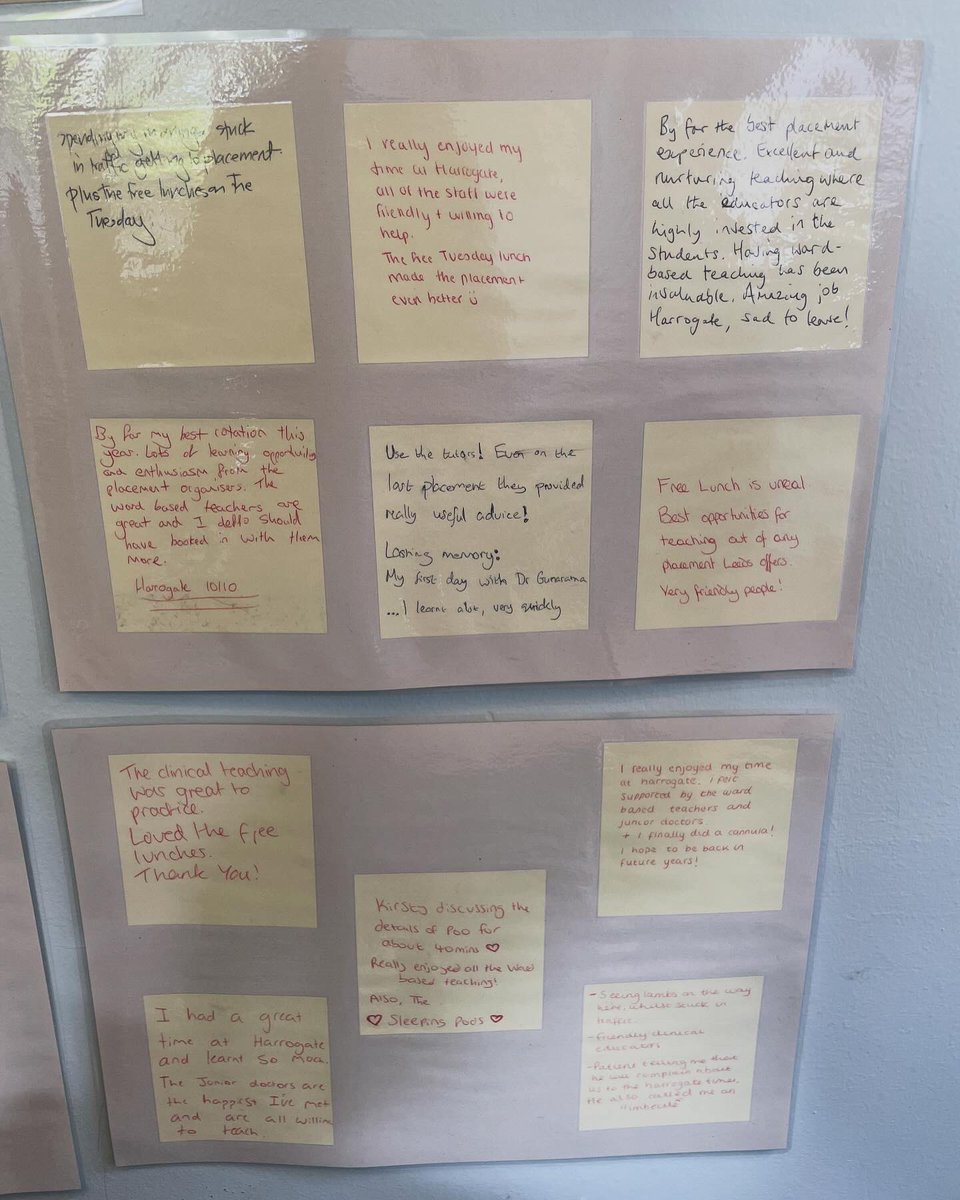 spending my mornings stuck
in traffic getting to placement.
plus the free lunches on the
Tuesday.
I really enjoyed my
time at Harrogate,
all of the staff were
friendly + willing to
help.
The free Tuesday lunch
made the placement
even better
By far the best placement
experience. Excellent and
nurturing teaching where
all the educators are
highly invested in the
students. Having ward-
based teaching has been
invaluable. Amazing job
Harrogate, sad to leave!
By far my best rotation this
year. Lots of learning opportunity
and enthusiasm from the
placement organisers. The
ward based teachers are
great and I should
have booked in with them
more.
Harrogate 10/10
Use the tutors! Even on the
last placement they provided
really useful advice!
Lasting memory:
My first day with Dr Gunarama
...I learnt alot, very quickly
Free Lunch is unreal.
Best opportunities for
teaching out of any
placement Leeds offers.
Very friendly people!
The clinical teaching
was great to
practice.
Loved the free
lunches.
Thank You!
I really enjoyed my time
at harrogate. I felt
supported by the ward
based teachers and
junior doctors
+ I finally did a cannula!
I hope to be back in
future years!
Kirsty discussing the
details of poo for
about 40mins ♡
Really enjoyed all the ward
based teaching!
Also, The
♡ Sleeping Pods ♡
I had a great
time at Harrogate
and learnt so
The Junior doctors are
the happiest I've met
and are all willing
to teach.
- Seeing lambs on the way
here, whilst stuck in
traffic.
- friendly clinical
educators
- Patient telling me that
he will complain about
us to the harrogate times,
He also called me an
"imbecile"